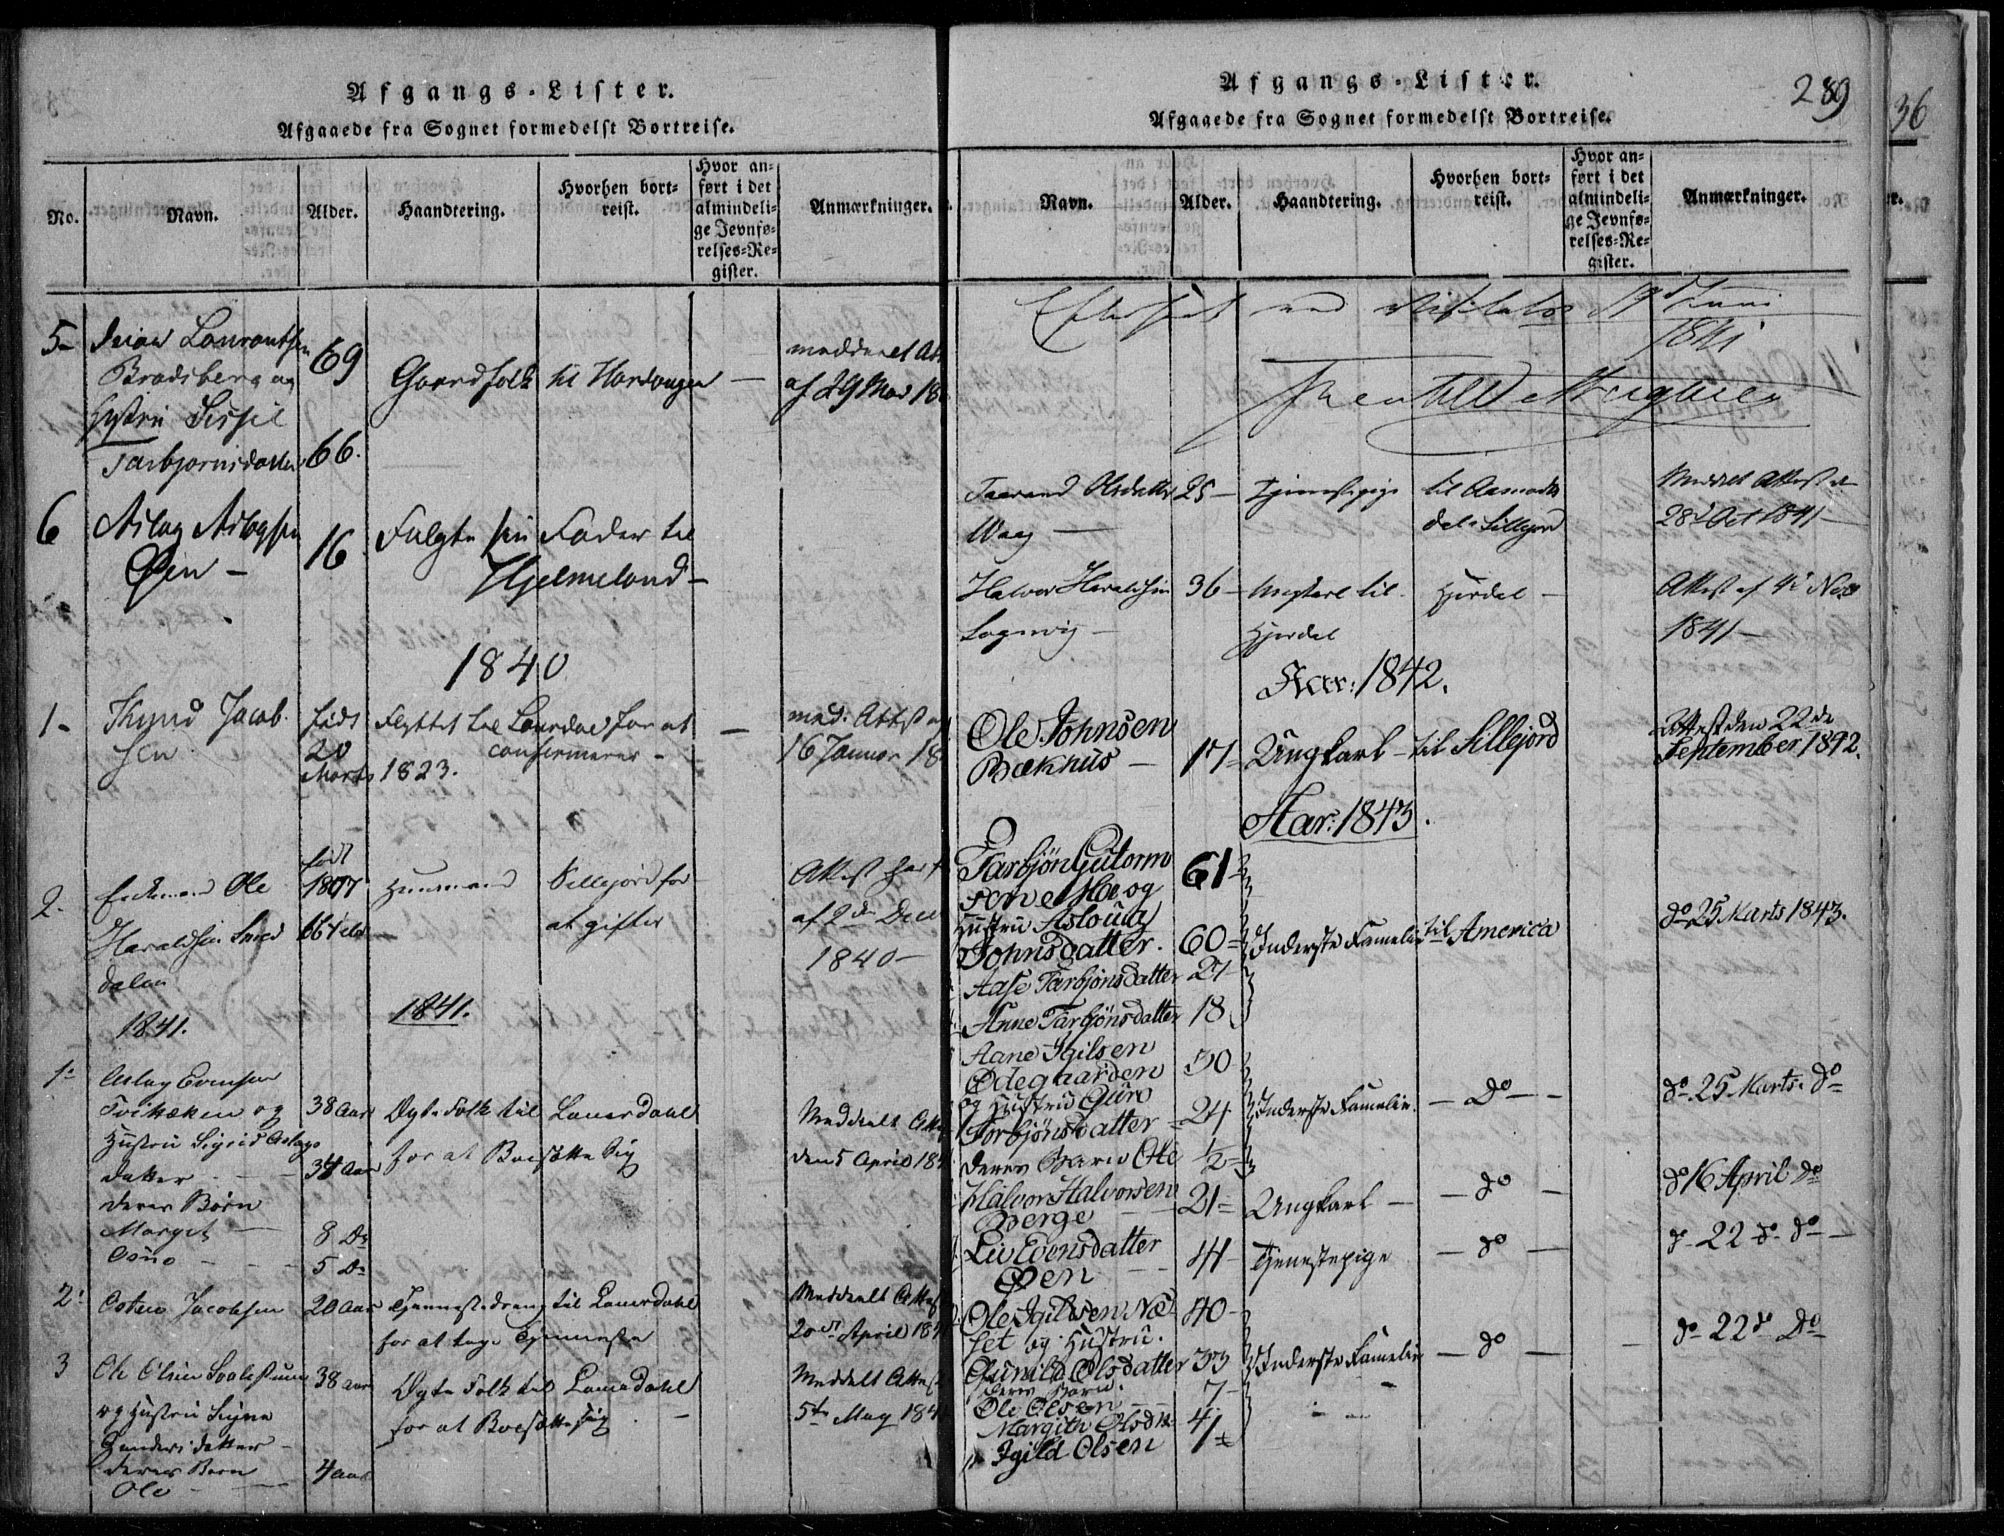 Afgangs-Lister.
Afgaaede fra Sognet formedelst Bortreise.
No.
Navn.
Alder.
Haandtering.
Hvorhen bort-
reist.
Hvor an-
ført i det
almindeli-
ge Jevnfø-
relses-Re-
gister.
Anmærkninger.
5-
Brodsberg og
Hustru Sissil
Tarbjørnsdatter
69
66.
Gaardfolk til Hardanger —
meddeelt
af 29 Mai 18
6
Aslag Aslagsen
Øien —
16
Fulgte sin Fader til
Hjelmeland —
1840
1-
Jacob-
sen
født
20
Marts 1823.
Flyttet til Laurdal for at
confirmeres —
med. Attest
16 Januar 18
2.
Enkemand Ole
Haraldsen
dalen
født
1807
Huusmand
Sillejord for
at gifte
Attest
af 2den Dec
1840 —
1841.
1841.
1-
Aslag Evensen
og
Hustru Sigrid Aslags
datter
deres Børn
Margit
38 Aar
34 Aar
8 Do
5 Do
Øgte Folk til Laurdahl
for at Boesætte sig
Meddeelt Attest
den 5 April 184
2-
Osten Jacobsen
20 Aar
Tjenestedreng til Laurdahl
for at tage Tjeneste
Meddeelt Attest
20de April 184
3
Ole Olsen
og Hustru Signe
Gundersdatter
deres Børn
Ole
38 Aar
4 Aar
Øgte Folk til Laurdahl
for at Boesætte sig
Meddelt Attest
5te May 184
Afgangs-Lister.
289
Afgaaede fra Sognet formedelst Bortreise.
36
Navn.
Alder.
Haandtering.
Hvorhen bort-
reist.
Hvor an-
ført i det
almindeli-
ge Jevnfø-
relses-Re-
gister.
Anmærkninger.
Efterseet ved Visitats Juni
1841
Olsdatter
Waag —
25 —
Tjenestepige
til
dal i Sillejord
Meddelt Attest
28de Oct 1841 —
Halvor Haraldsen
Lognvig —
36 —
Ungkarl til
Hjerdal
Hjerdal —
Attest af 4de Nov
1841 —
Aar: 1842.
Ole Johnsen
Bækhus —
17 —
Ungkarl —
til Sillejord
Attest den 22de
September 1842.
Aar: 1843.
Tarbjön Gutorm
sen Moe og
Hustru Asloug
Johnsdatter.
Aase Tarbjönsdatter
Anne Tarbjönsdatter
61
60
27
18
Inderste Famelie
til America
do 25 Marts 1843.
Aane Igilsen
Ödegaarden
og Hustru Guro
Torbjönsdatter
deres Barn Ole
30
24
1/2
Inderste Famelie.
— Do —
do 25 Marts. do
Halvor Halvorsen
Berge
21
Ungkarl —
— do —
do 16 April do
Liv Evensdatter
Øen
Tjenestepige
— do —
do 22 do do —
Ole Igilsen Næ-
set og Hustru.
Gunild Olsdatter
deres Barn.
Ole Olsen
Margith Olsdtr
Igild Olsen
40
33
7 —
4
1
Inderste Famelie
— do —
do 22 do Do